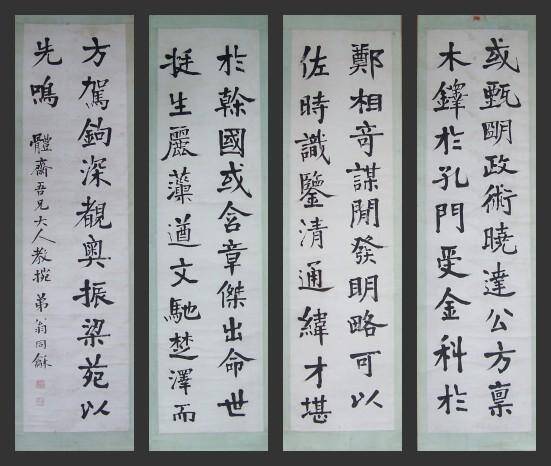 或甄明政術曉達公方稟
木鐸於孔門受金科於
鄭相奇謀間發明略可以
佐時識鑒清通緯才堪
於幹國或含章傑出命世
挺生麗藻遒文馳楚澤而
方駕鉤深覩奧振梁苑以
先鳴
體齋吾兄大人教 弟翁同龢